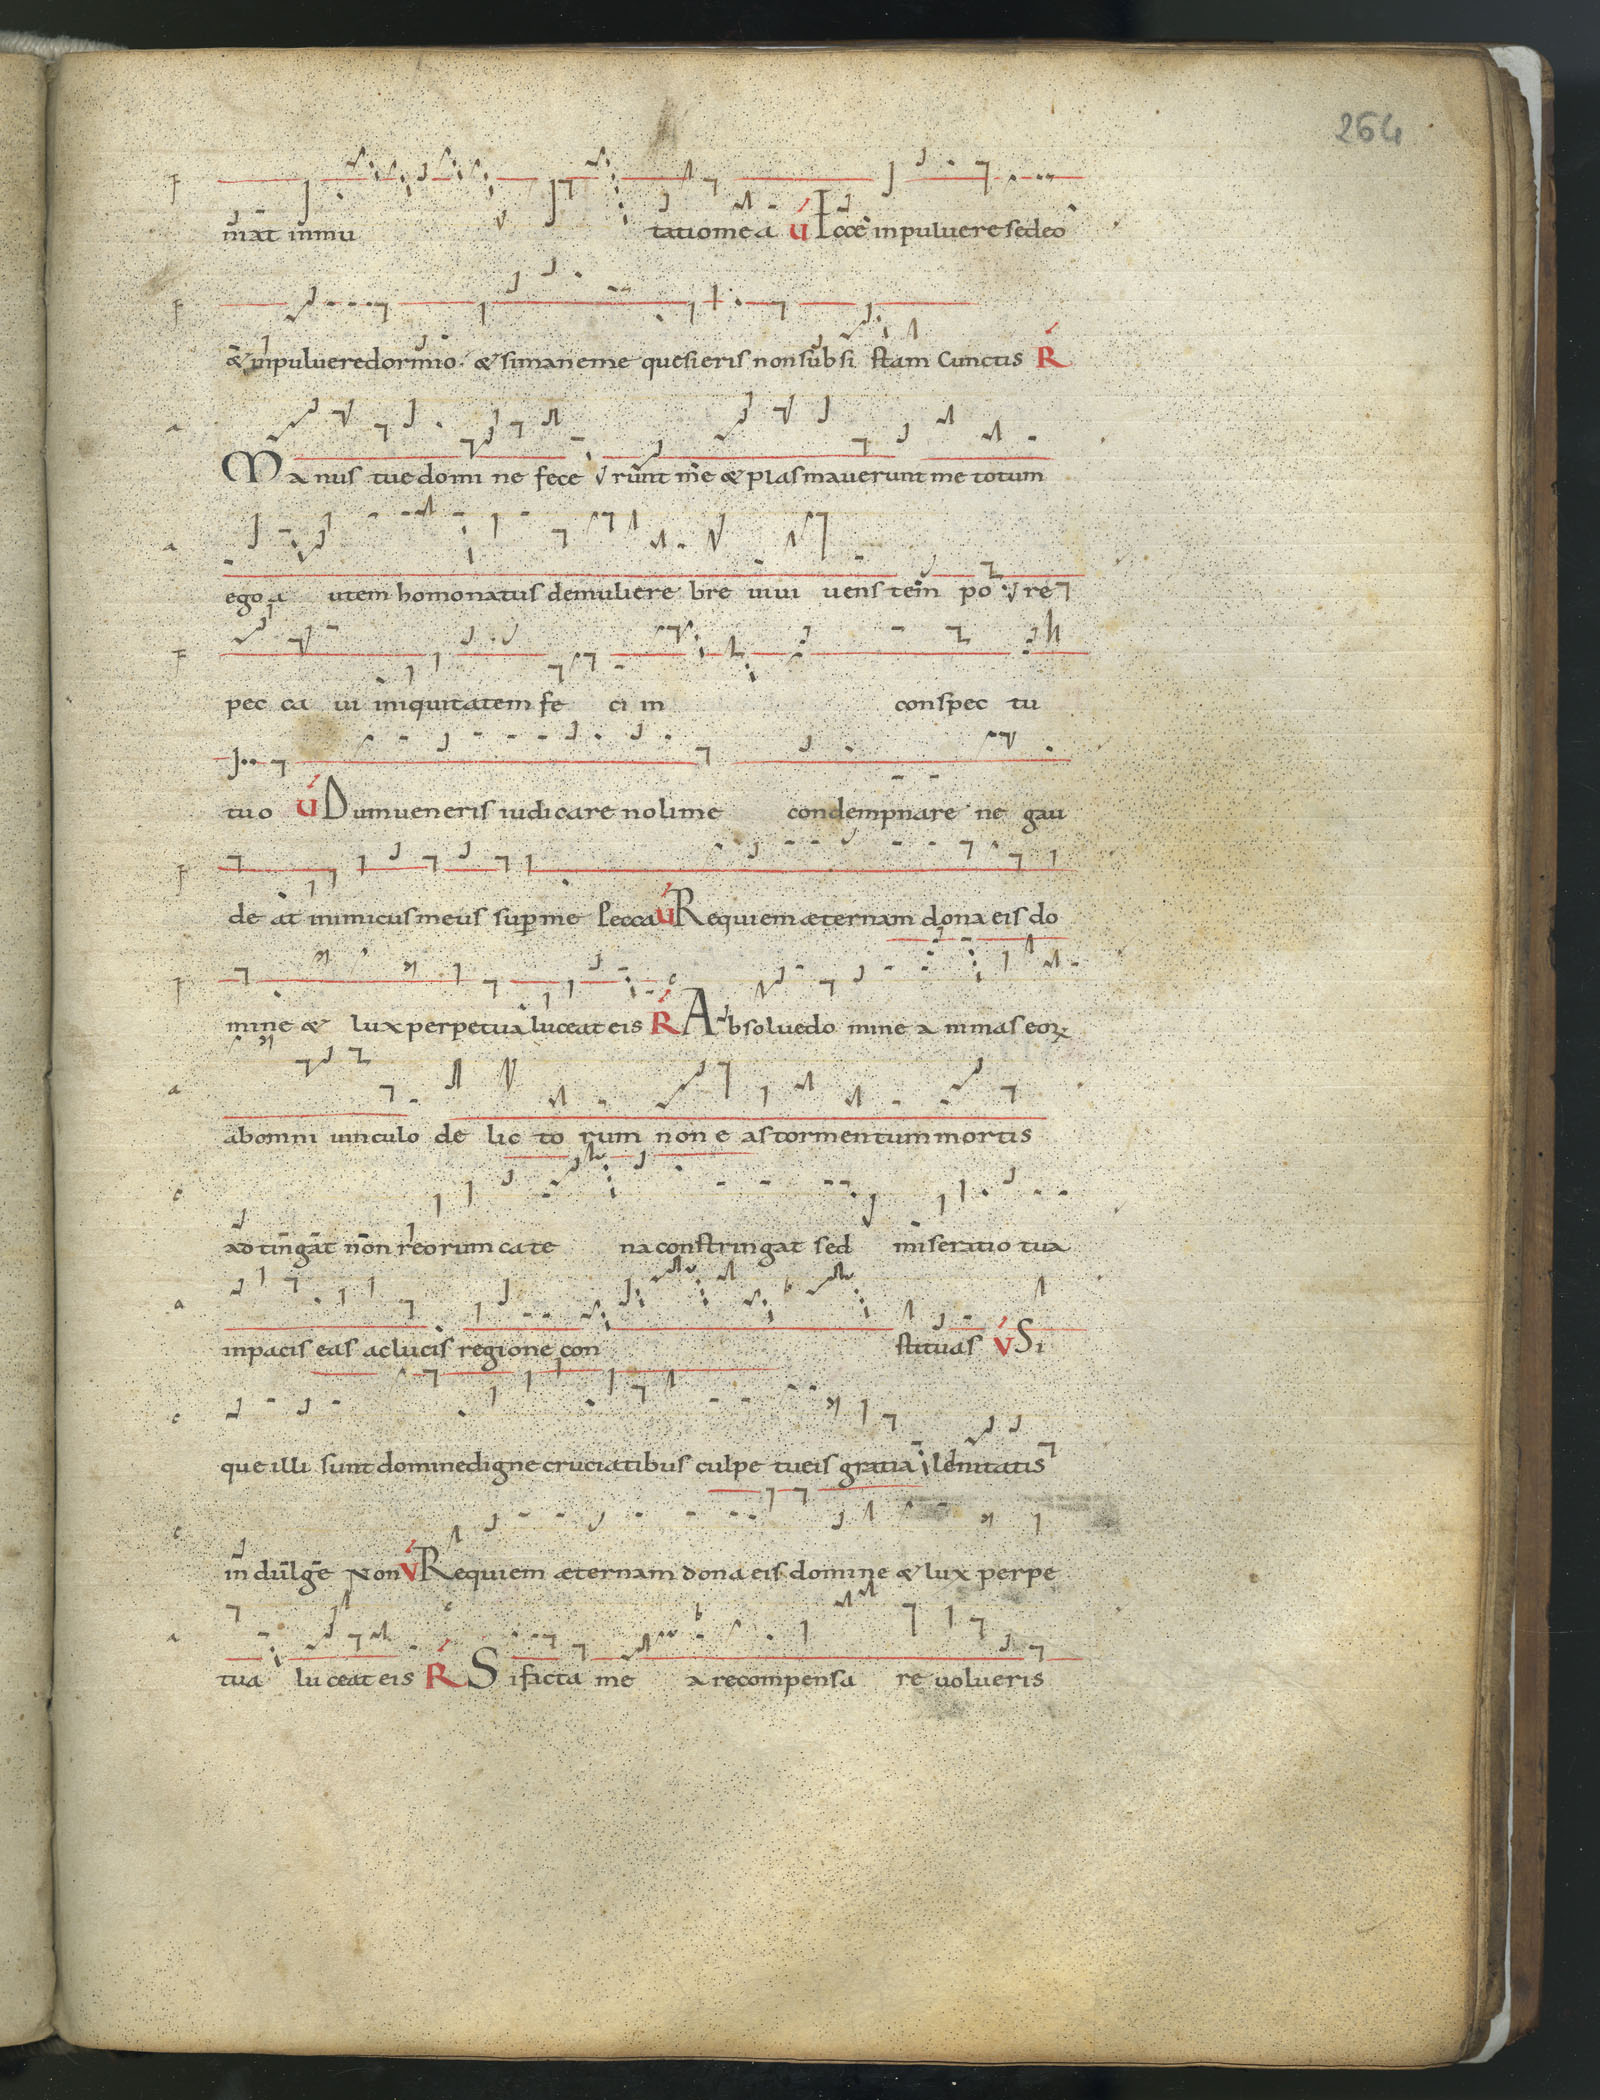 264
mat inmu tatio mea V Ecce inpuluere sedeo
& inpuluere dormio & si mane me quesieris non subsi stam Cunctis R
Manus tue domi ne fece runt me & plasmauerunt me totum
ego a utem homo natus demuliere bre ui ui uens tem po re
pec ca ui iniquitatem fe ci in conspec tu
tuo V Dum ueneris iudicare noli me condempnare ne gau
de at inimicus meus sup me Pecca V Requiem æternam dona eis do
mine & lux perpetua luceat eis R Absolue do mine a nimas eoꝝ
abomni uinculo de lic to rum non e as tormentum mortis
adtingat non reorum cate na constringat sed miseratio tua
inpacis eas ac lucis regione con stituas V Si
que illi sunt domine digne cruciatibus culpe tu eis gratia lenitatis
indulge Non V Requiem æternam dona eis domine & lux perpe
tua luceat eis R Si facta me a recompensa re uolueris